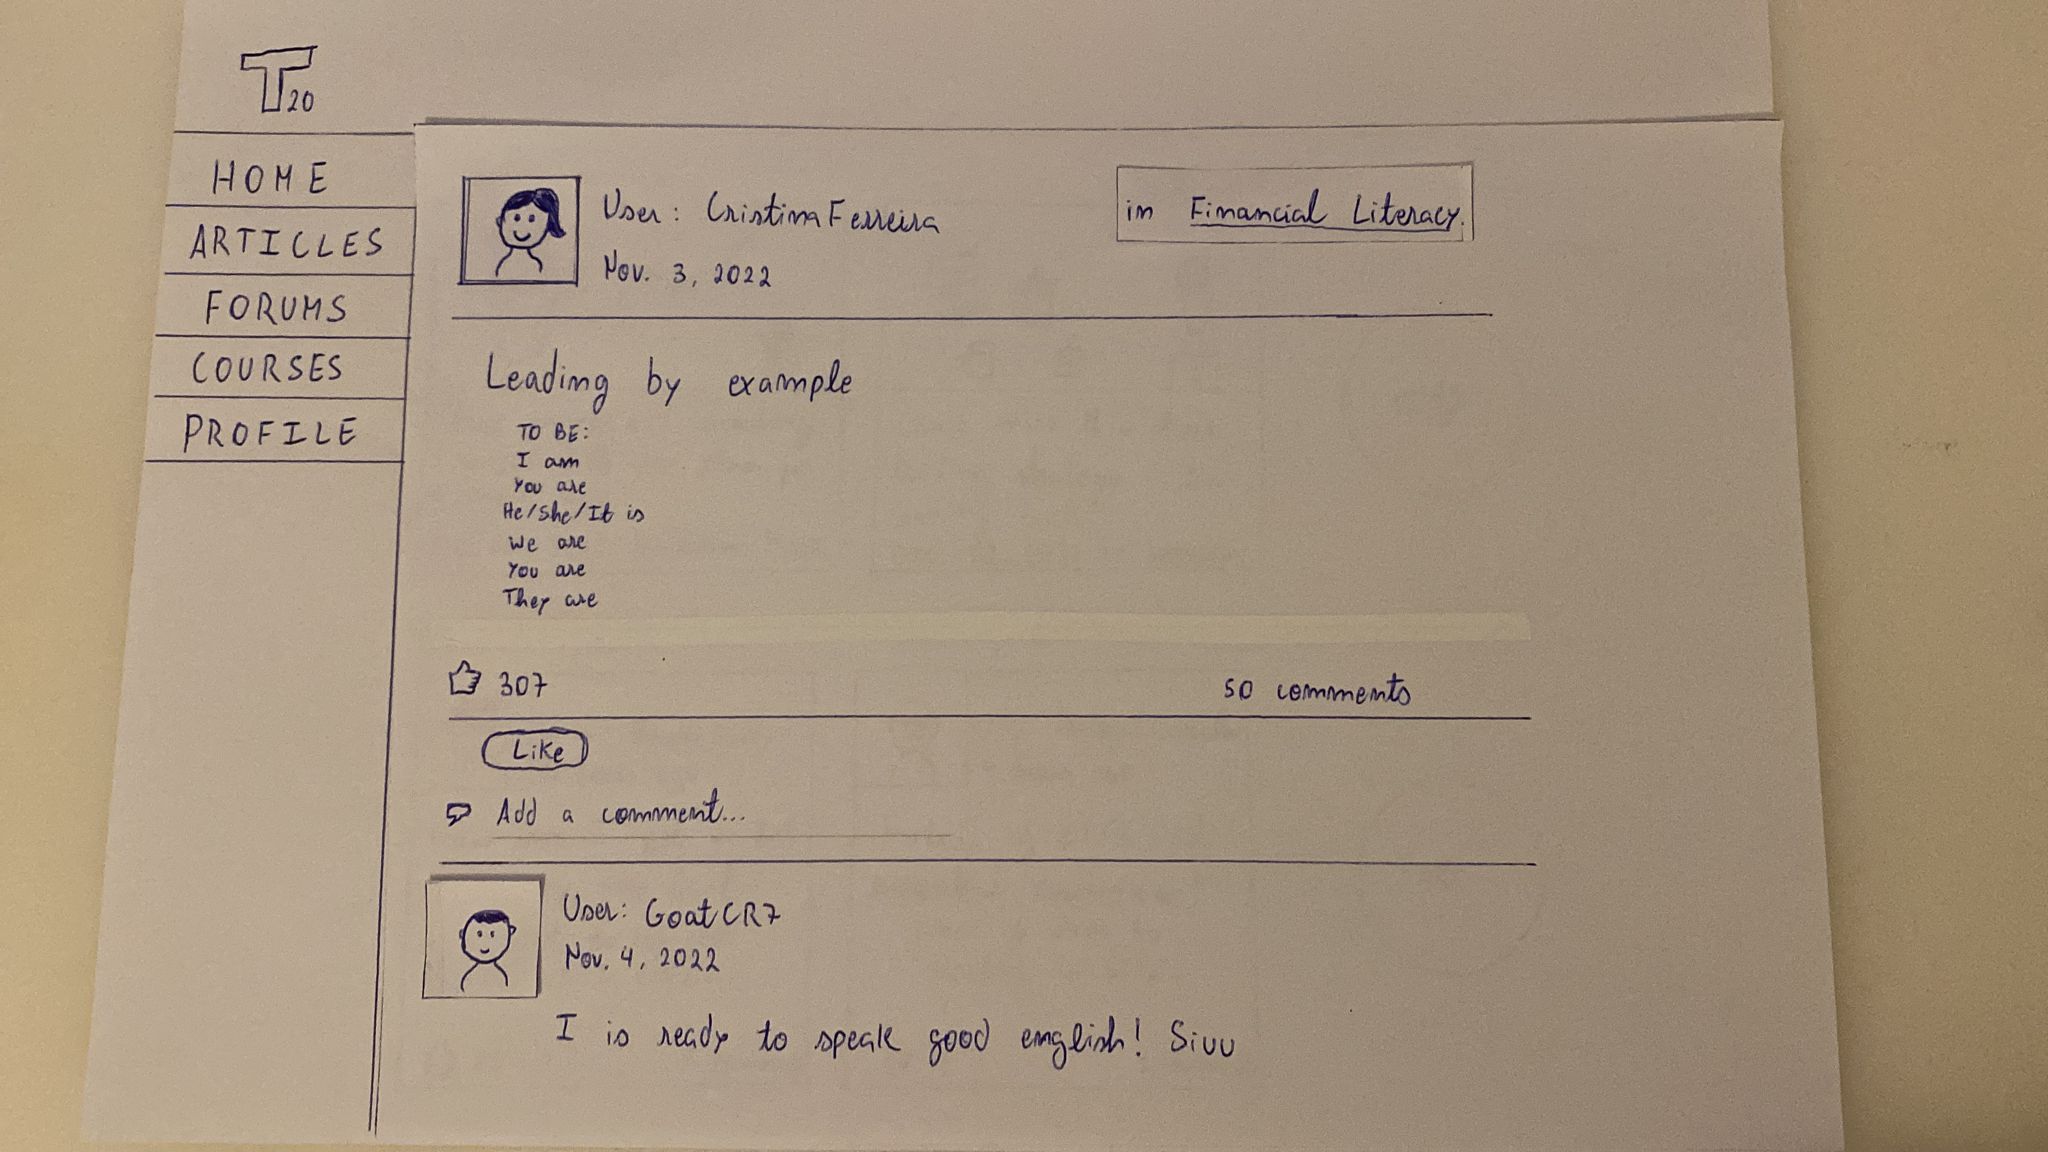 T20
HOME
ARTICLES
FORUMS
COURSES
PROFILE
User: CristinaFerreira
Nov. 3, 2022
in Financial Literacy.
Leading by example
TO BE:
I am
You are
He/She/It is
We are
You are
They are
307
50 comments
Like
Add a comment...
User: GoatCR7
Nov. 4, 2022
I is ready to speak good english! Siuu